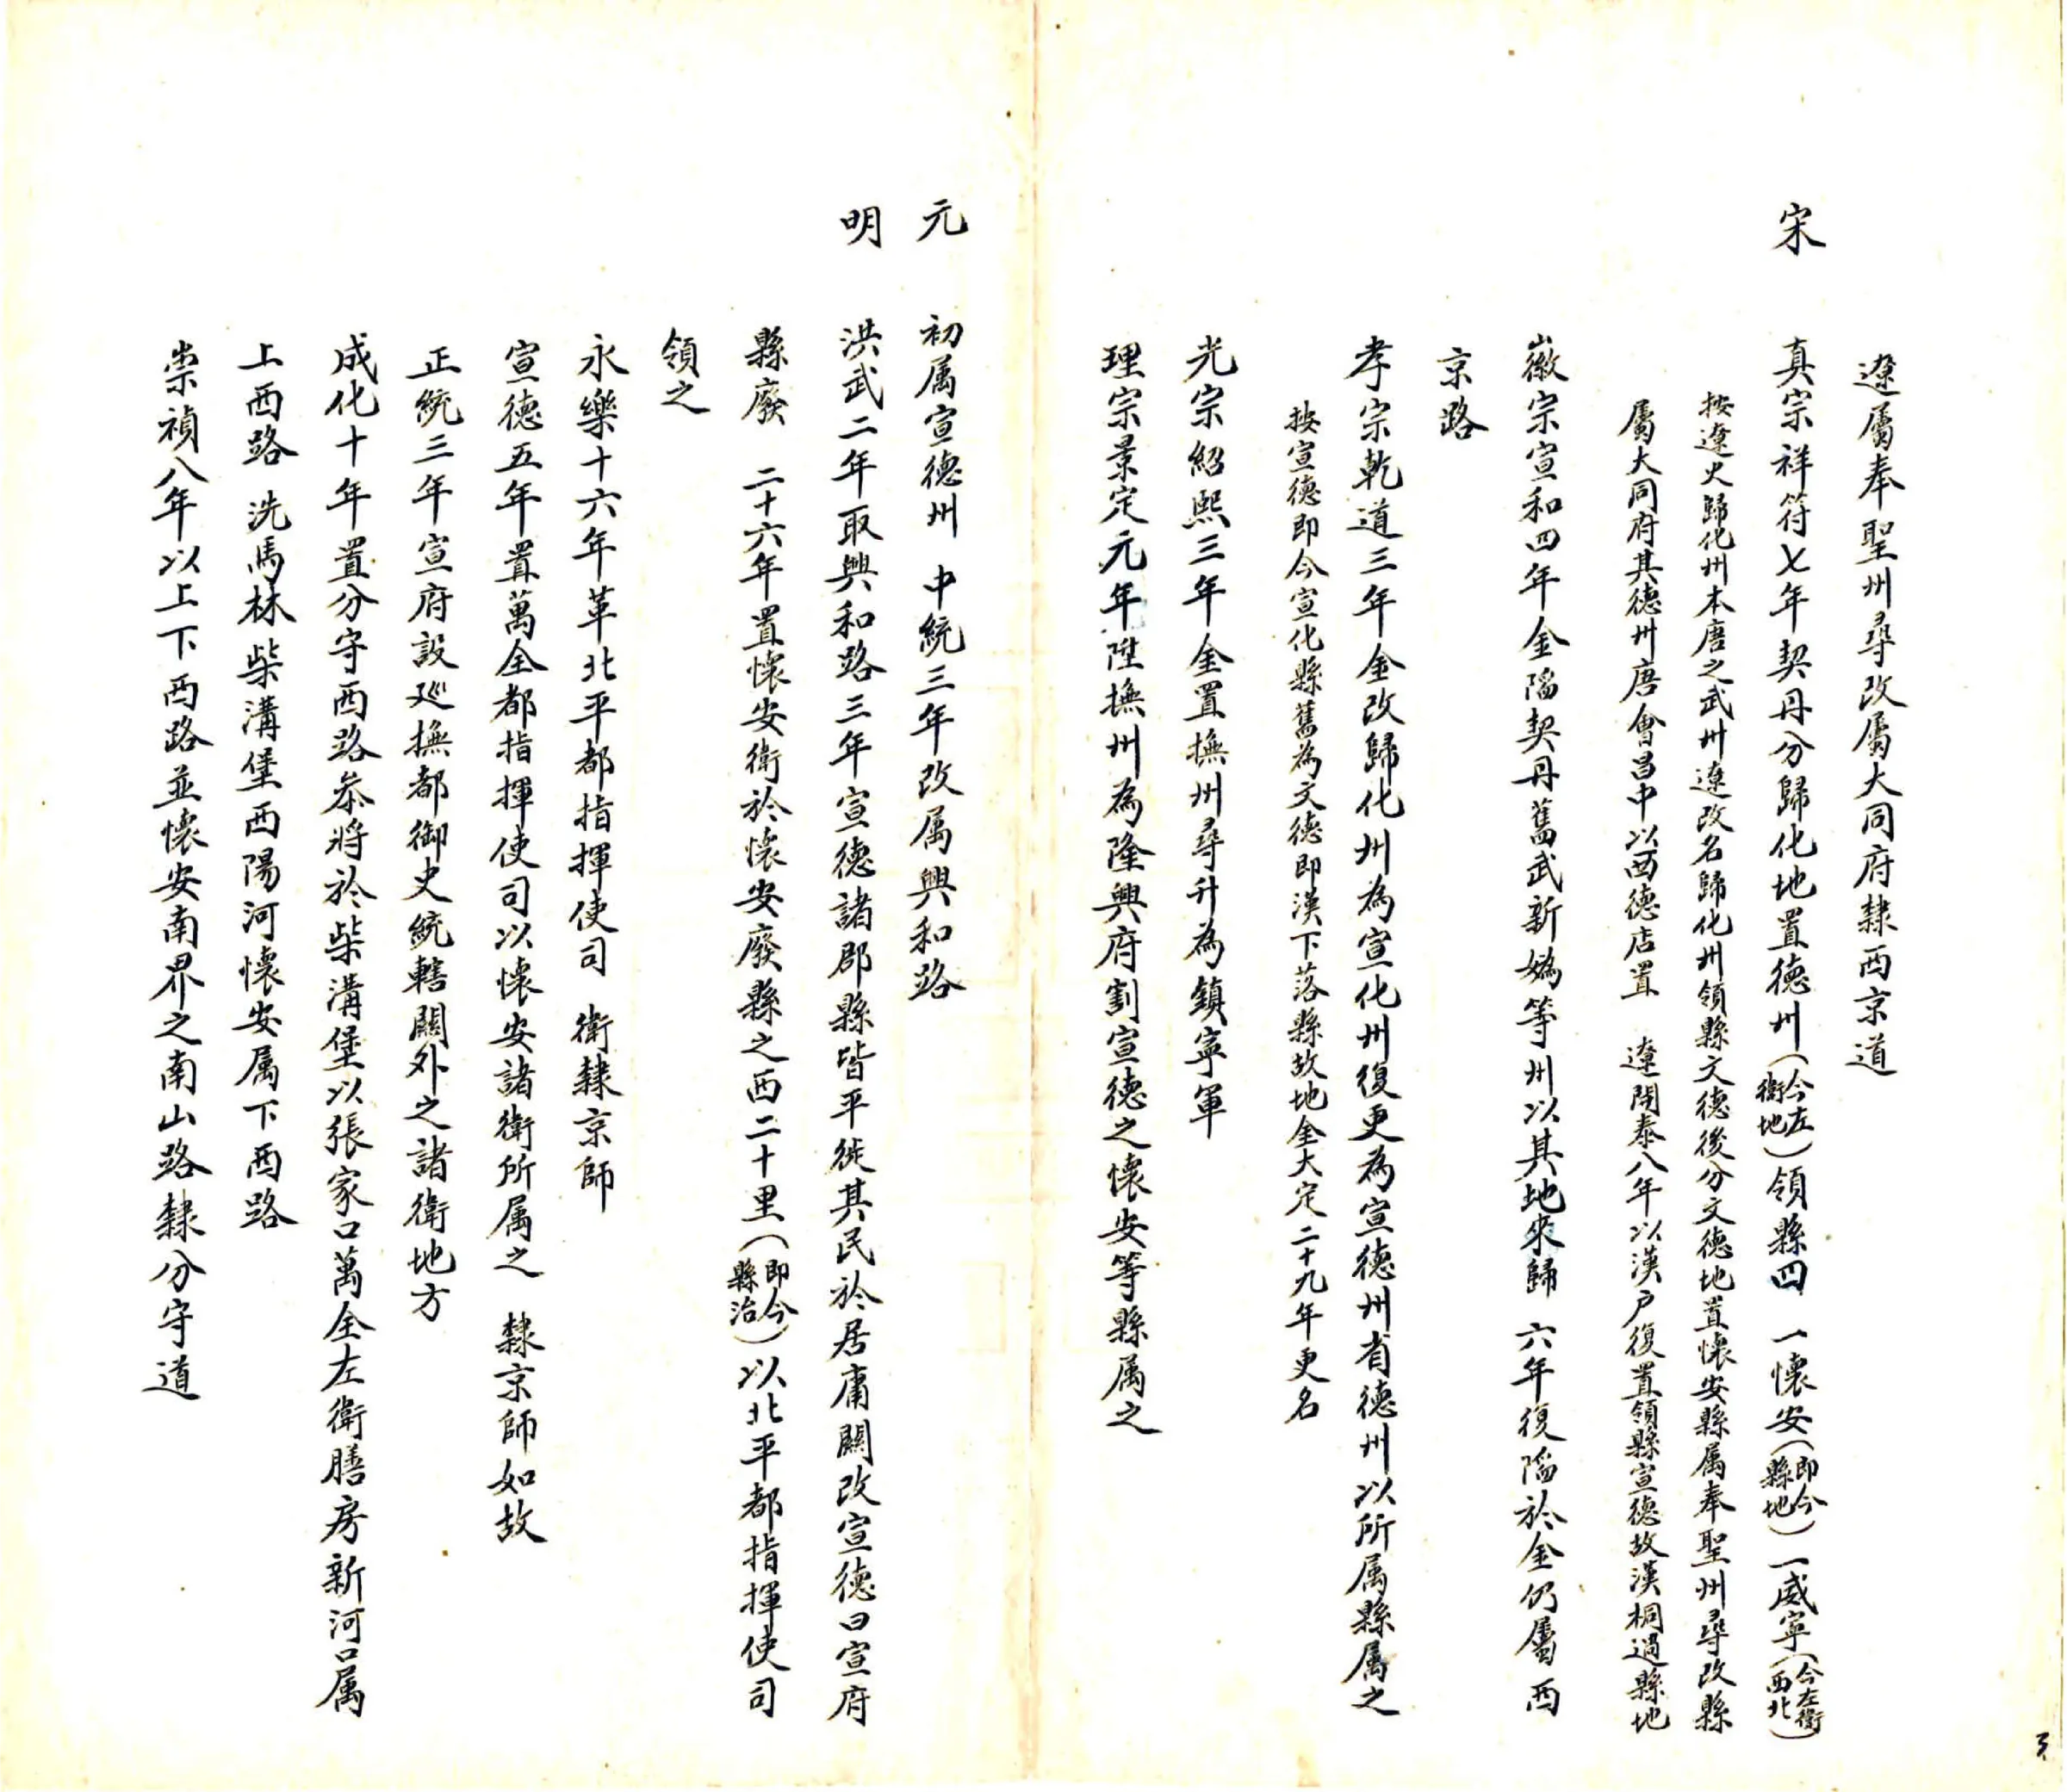 遼屬奉聖州尋改屬大同府隸西京道
宋　真宗祥符七年契丹分歸化地置德州（今左衛地）領縣四　一懷安（即今縣地）一威寧（今左衛西北）
按遼史歸化州本唐之武州遼改名歸化州領縣文德後分文德地置懷安縣属奉聖州尋改縣
屬大同府其德州唐會昌中以西德店置　遼開泰八年以漢户復置領縣宣德故漢桐過縣地
徽宗宣和四年金陷契丹舊武新媯等州以其地來歸　六年復陷於金仍屬西
京路
孝宗乾道三年金改歸化州為宣化州復更為宣德州省德州以所属縣属之
按宣德即今宣化縣舊為文德即漢下落縣故地金大定二十九年更名
光宗紹熙三年金置撫州尋升為鎮寧軍
理宗景定元年陞撫州為隆興府割宣德之懷安等縣属之
元　初属宣德州　中統三年改属興和路
明　洪武二年取興和路三年宣德諸郡縣皆平徙其民於居庸關改宣德曰宣府
縣廢　二十六年置懷安衛於懷安廢縣之西二十里（即今縣治）以北平都指揮使司
領之
永樂十六年革北平都指揮使司　衛隸京師
宣德五年置萬全都指揮使司以懷安諸衛所属之　隸京師如故
正統三年宣府設巡撫都御史統轄關外之諸衛地方
成化十年置分守西路叅將於柴溝堡以張家口萬全左衛膳房新河口属
上西路　洗馬林柴溝堡西陽河懷安属下西路
崇禎八年以上下西路並懷安南界之南山路隸分守道
3